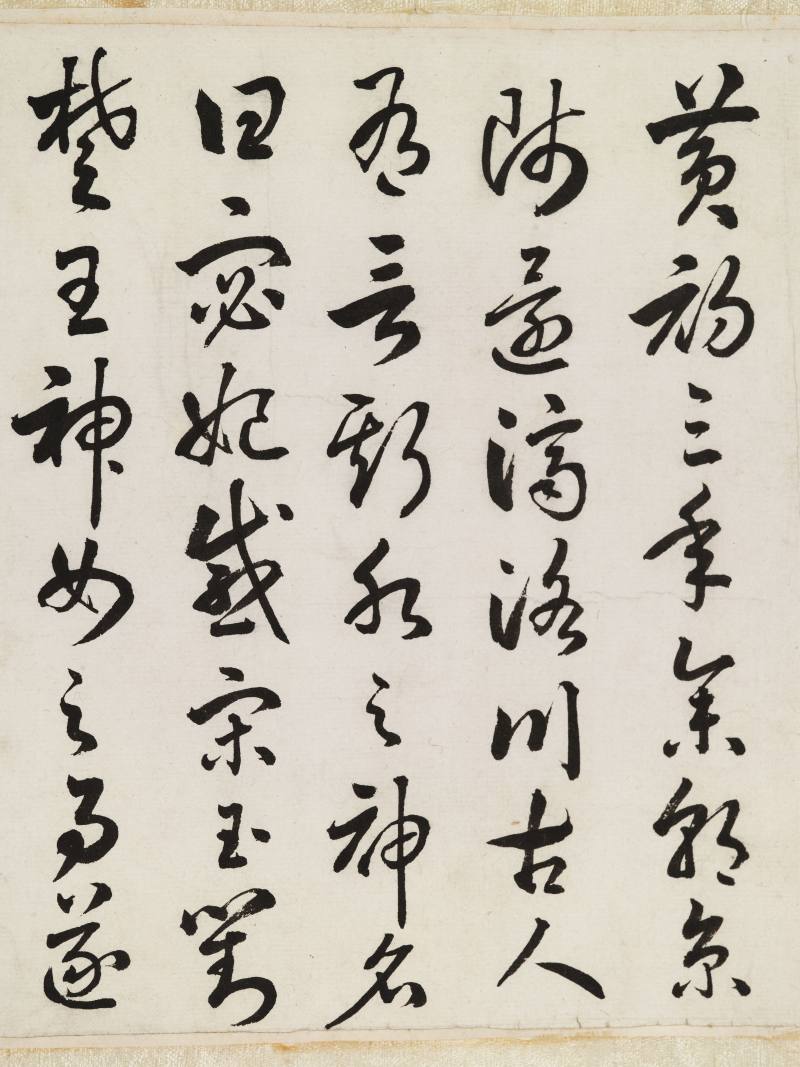 黃初三年余朝京
師還濟洛川古人
有言斯水之神名
曰宓妃感宋玉對
楚王神女之事遂